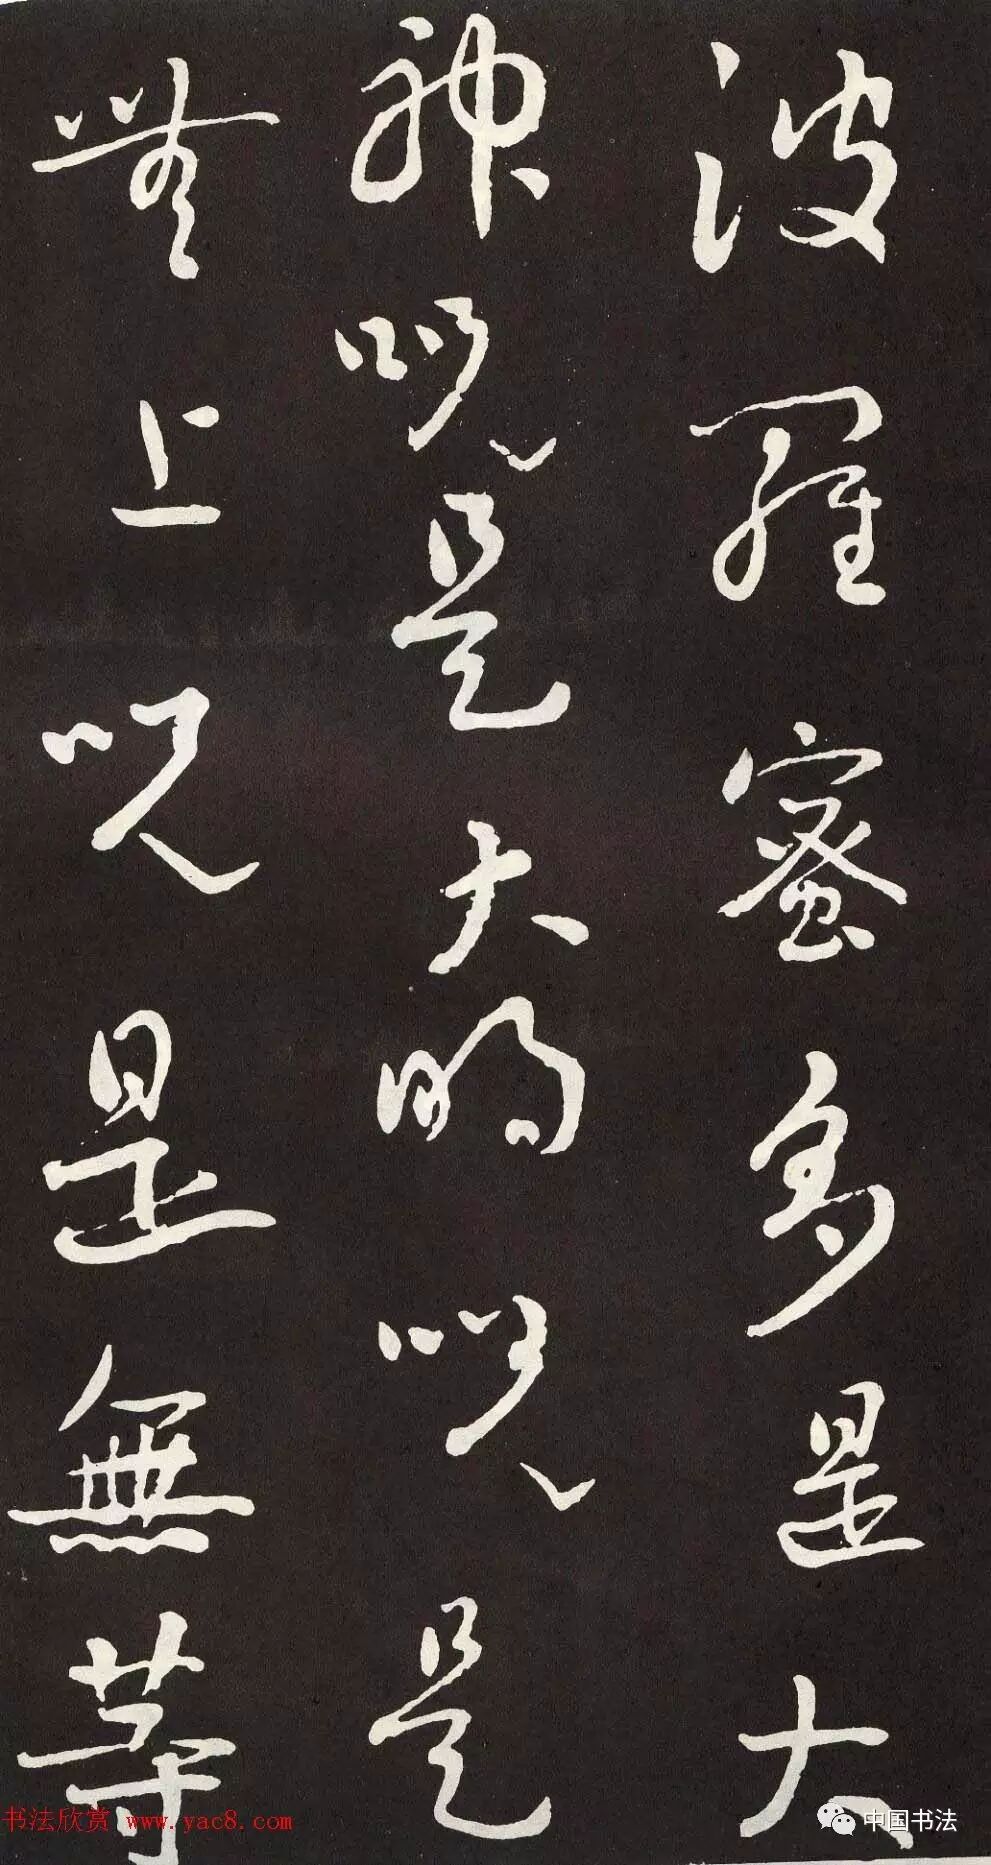 波羅蜜多是大
神咒是大明咒是
無上咒是無等
书法欣赏 www.yac8.com
中国书法